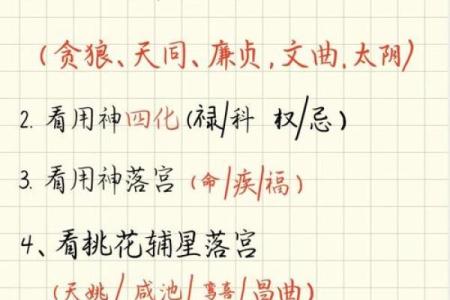 (贪狼、天同、廉贞,文曲.太阴)
2. 看用神四化(禄/科 权/忌)
3. 看用神落宫(命/疾/福)
4、看桃花辅星落宫
(天姚/咸池/鸾喜/昌曲)